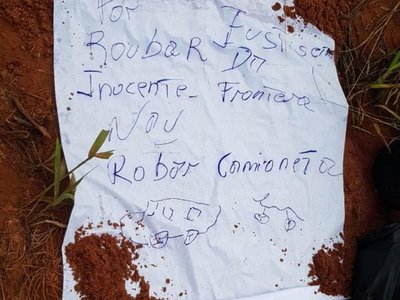 Por
Roubar Justisa
Inocente Da
Frontera
Nau
Robar Camioneta